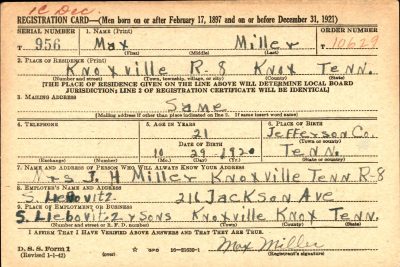 1C Dec.
REGISTRATION CARD—(Men born on or after February 17, 1897 and on or before December 31, 1921)
SERIAL NUMBER
1. NAME (Print)
ORDER NUMBER
T 956
Max Miller
10629
(First) (Middle) (Last)
2. PLACE OF RESIDENCE (Print)
Knoxville R-8 Knox Tenn.
(Number and street) (Town, township, village, or city) (County) (State)
[THE PLACE OF RESIDENCE GIVEN ON THE LINE ABOVE WILL DETERMINE LOCAL BOARD
JURISDICTION; LINE 2 OF REGISTRATION CERTIFICATE WILL BE IDENTICAL]
3. MAILING ADDRESS
Same
[Mailing address if other than place indicated on line 2. If same insert word same]
4. TELEPHONE
5. AGE IN YEARS
6. PLACE OF BIRTH
21
Jefferson Co.
DATE OF BIRTH
(Town or county)
10 29 1920
Tenn.
(Exchange) (Number)
(Mo.) (Day) (Yr.)
(State or country)
7. NAME AND ADDRESS OF PERSON WHO WILL ALWAYS KNOW YOUR ADDRESS
J. H Miller Knoxville Tenn R-8
8. EMPLOYER'S NAME AND ADDRESS
S. Liebovitz 211 Jackson Ave
9. PLACE OF EMPLOYMENT OR BUSINESS
S. Liebovitz & Sons Knoxville Knox Tenn.
(Number and street or R. F. D. number) (Town) (County) (State)
I AFFIRM THAT I HAVE VERIFIED ABOVE ANSWERS AND THAT THEY ARE TRUE.
D. S. S. Form 1
(Revised 1-1-42)
(over)
GPO 16-21630-1
Max Miller
(Registrant's signature)